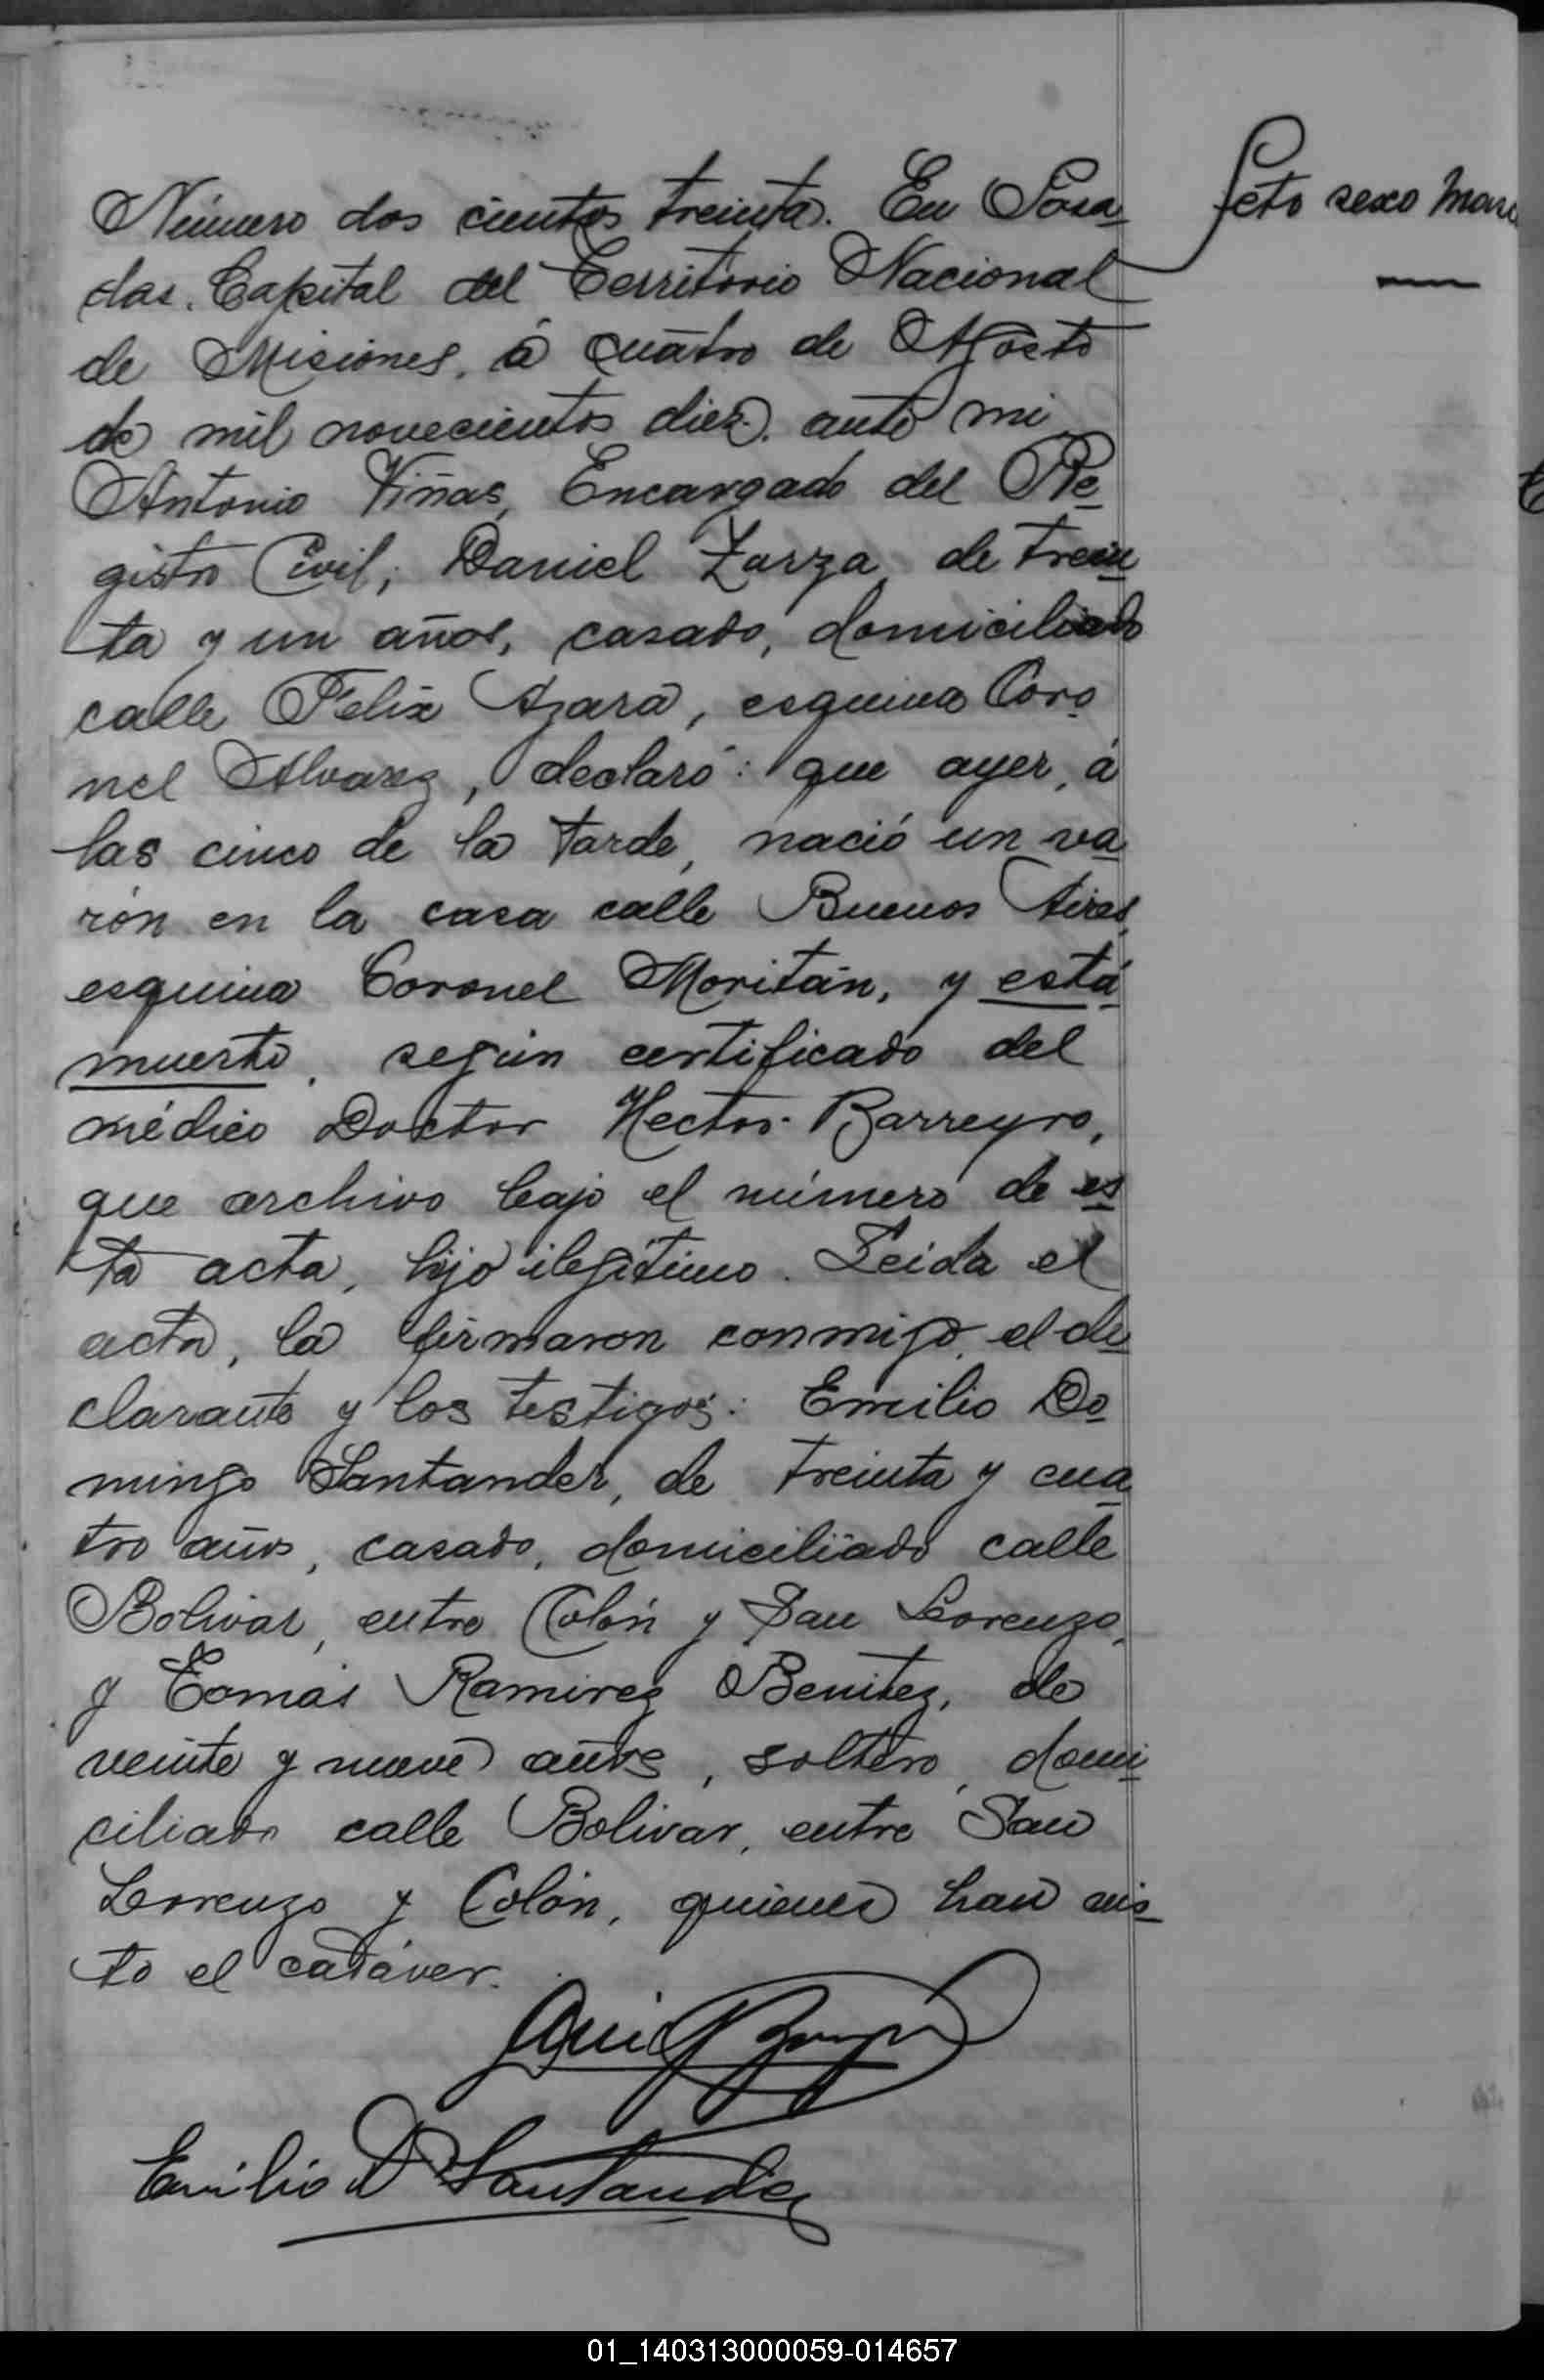 Número dos cientos treinta. En Posa-
das, Capital del Territorio Nacional
de Misiones, á cuatro de Agosto
de mil novecientos diez, ante mi
Antonio Viñas, Encargado del Re-
gistro Civil; Daniel Zarza, de trein-
ta y un años, casado, domiciliado
calle Felix Azara, esquina Coro-
nel Alvarez, declaró: que ayer, á
las cinco de la tarde, nació un va-
rón en la casa calle Buenos Aires,
esquina Coronel Moritán, y está
muerto, según certificado del
médico Doctor Hector Barreyro,
que archivo bajo el número de es-
ta acta, hijo ilegítimo. Leida el
acta, la firmaron conmigo, el de-
clarante y los testigos: Emilio Do-
mingo Santander, de treinta y cua-
tro años, casado, domiciliado calle
Bolivar, entre Colón y San Lorenzo,
y Tomás Ramirez Benitez, de
veinte y nueve años, soltero, domi-
ciliado calle Bolivar, entre San
Lorenzo y Colón, quienes han vis-
to el cadáver.
Emilio D Santander
feto sexo masc
01_140313000059-014657